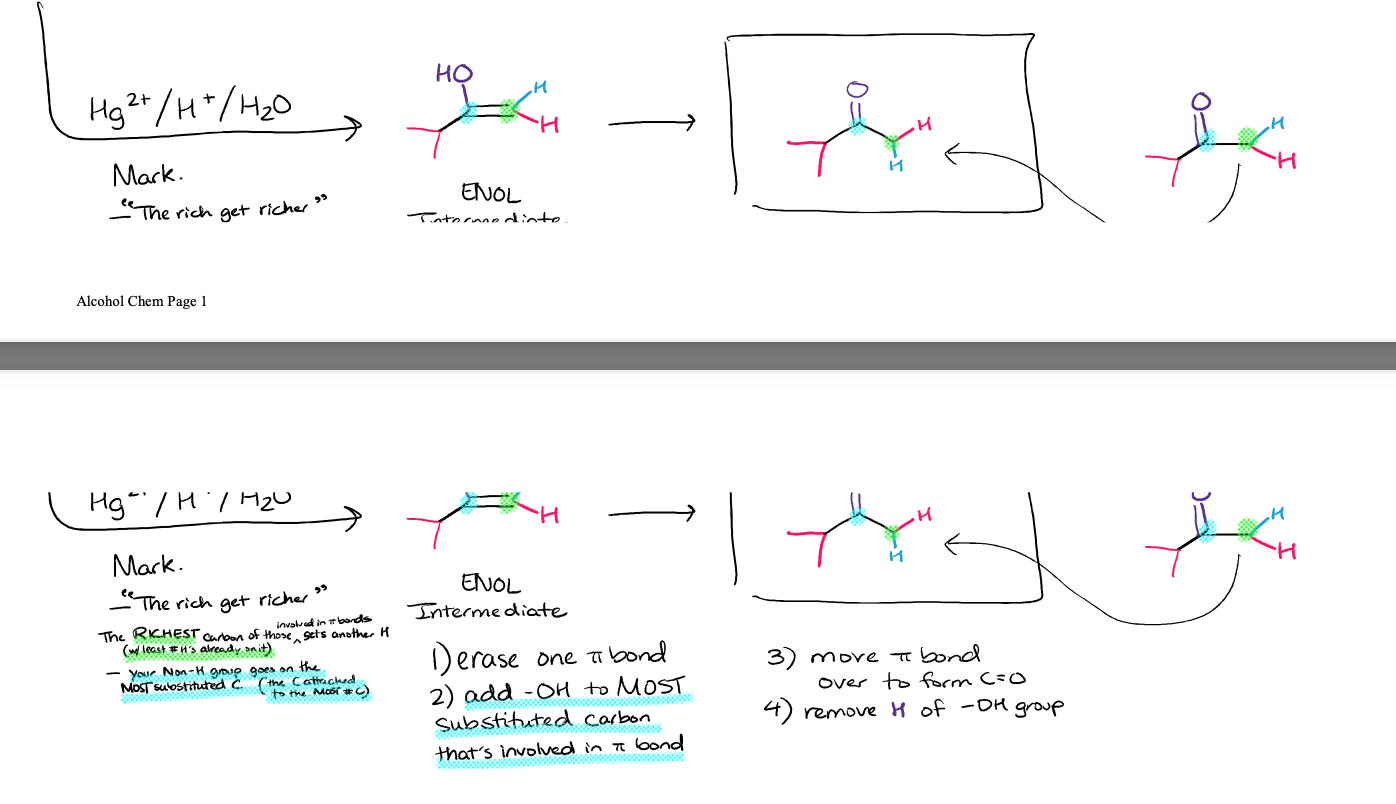 Hg²⁺/H⁺/H₂O
HO
H
H
O
H
H
O
H
H
Mark.
— "The rich get richer"
ENOL
Intermediate
Alcohol Chem Page 1
Hg²⁺/H⁺/H₂O
H
H
H
H
H
Mark.
— "The rich get richer"
The RICHEST carbon of those ^ involved in π bonds gets another H
(w/ least # H's already on it)
— Your Non-H group goes on the
MOST substituted C. (the C attached
to the MOST # C)
ENOL
Intermediate
1) erase one π bond
2) add -OH to MOST
substituted carbon
that's involved in π bond
3) move π bond
over to form C=O
4) remove H of -OH group